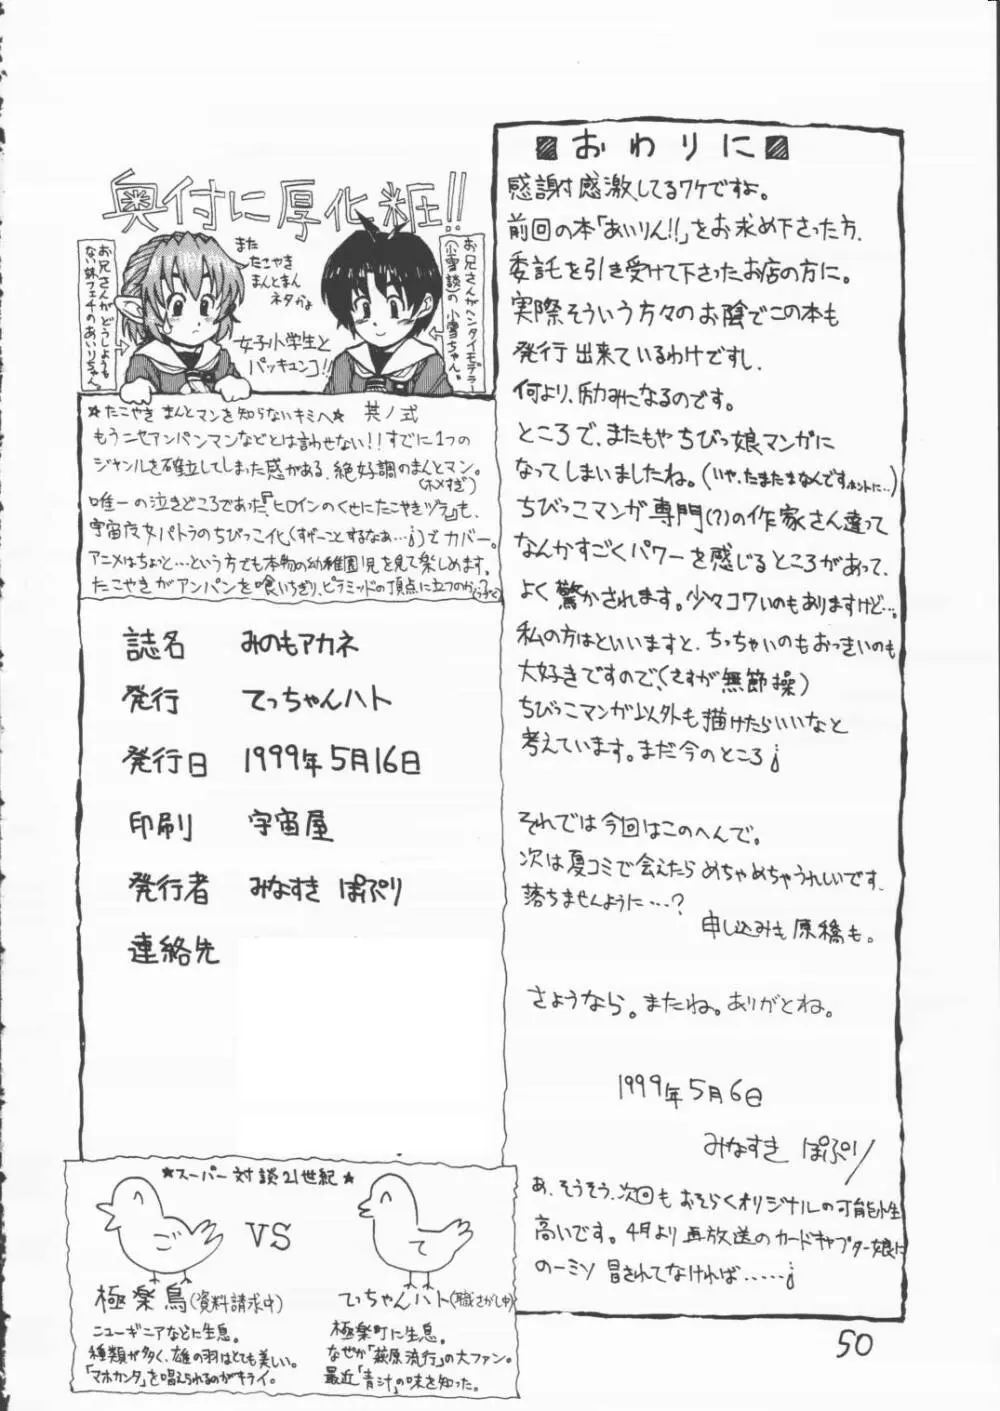 ■おわりに■
感謝感激してるワケですよ。
前回の本「あいりん!!」をお求め下さった方、
委託を引き受けて下さったお店の方に。
実際そういう方々のお陰でこの本も
発行出来ているわけですし、
何より、励みになるのです。
ところで、またもやちびっ娘マンガに
なってしまいましたね。(いや、たまたまなんですホントに…)
ちびっこマンガ専門(?)の作家さん達って
なんかすごくパワーを感じるところがあって、
よく驚かされます。少々コワいのもありますけど…。
私の方はといいますと、ちっちゃいのもおっきいのも
大好きですので、(さすが無節操)
ちびっこマンガ以外も描けたらいいなと
考えています。まだ今のところ
それでは今回はこのへんで。
次は夏コミで会えたらめちゃめちゃうれしいです。
落ちませんように…?
申し込みも原稿も。
さようなら。またね。ありがとね。
1999年5月6日
みなすき ぽぷり
あ、そうそう、次回もおそらくオリジナルの可能性
高いです。4月より再放送のカードキャプター娘に
のーミソ冒されてなければ……
奥付に厚化粧!!
お兄さんがどうしようも
ない妹フェチのあいりちゃん。
また
たこやき
まんとまん
ネタかよ
女子小学生と
バッキュンコ!!
お兄さんがヘンタイモデラー
(小雪談)の小雪ちゃん。
★たこやきまんとマンを知らないキミへ★ 其ノ弐
もうニセアンパンマンなどとは言わせない!!すでに1つの
ジャンルを確立してしまった感がある、絶好調のまんとマン。
(ホメすぎ)
唯一の泣きどころであった、『ヒロインのくせにたこやきヅラ』も、
宇宙少女パトラのちびっこ化(すげーことするなあ…)でカバー。
アニメはちょと…という方でも本物の幼稚園児を見て楽しめます。
たこやきがアンパンを喰いちぎり、ピラミッドの頂点に立つのか
誌名 みのもアカネ
発行 てっちゃんハト
発行日 1999年5月16日
印刷 宇宙屋
発行者 みなすき ぽぷり
連絡先
★スーパー対談21世紀★
ご
VS
て
極楽鳥(資料請求中)
ニューギニアなどに生息。
種類が多く、雄の羽はとても美しい。
「マホカンタ」を唱えられるのがキライ。
てっちゃんハト(職さがし中)
極楽町に生息。
なぜか「萩原流行」の大ファン。
最近「青汁」の味を知った。
50